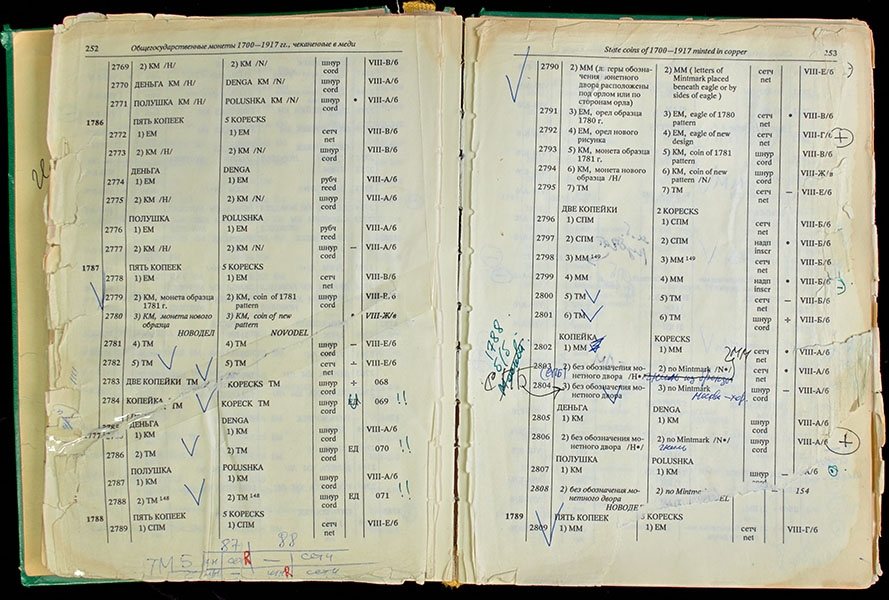 252 Общегосударственные монеты 1700—1917 гг., чеканенные в меди
2769 2) КМ /Н/ 2) KM /N/ шнур VIII-В/б
cord
2770 ДЕНЬГА КМ /Н/ DENGA KM /N/ шнур VIII-А/б
cord
2771 ПОЛУШКА КМ /Н/ POLUSHKA KM /N/ шнур • VIII-А/б
cord
1786 ПЯТЬ КОПЕЕК 5 KOPECKS
2772 1) ЕМ 1) EM сетч VIII-В/б
net
2773 2) КМ /Н/ 2) KM /N/ шнур VIII-В/б
cord
ДЕНЬГА DENGA
2774 1) ЕМ 1) EM рубч VIII-А/б
reed
2775 2) КМ /Н/ 2) KM /N/ шнур VIII-А/б
cord
ПОЛУШКА POLUSHKA
2776 1) ЕМ 1) EM рубч VIII-А/б
reed
2777 2) КМ /Н/ 2) KM /N/ шнур — VIII-А/б
cord
1787 ПЯТЬ КОПЕЕК 5 KOPECKS
2778 1) ЕМ 1) EM сетч VIII-В/б
net
2779 2) КМ, монета образца 2) KM, coin of 1781 шнур
1781 г. pattern cord
2780 3) КМ, монета нового 3) KM, coin of new шнур • VIII-Ж/в
образца pattern cord
НОВОДЕЛ NOVODEL
2781 4) ТМ 4) TM шнур — VIII-Е/б
cord
2782 5) ТМ 5) TM сетч ÷ VIII-Е/б
net
2783 ДВЕ КОПЕЙКИ ТМ KOPECKS TM шнур ÷ 068
cord
2784 КОПЕЙКА ТМ KOPECK TM шнур ЕД 069 !!
cord
ДЕНЬГА DENGA
1) КМ 1) KM шнур VIII-А/б
cord
2786 2) ТМ 2) TM шнур ЕД 070 !!
cord
ПОЛУШКА POLUSHKA
2787 1) КМ 1) KM шнур VIII-А/б
cord
2788 2) ТМ 148 2) TM 148 шнур ЕД 071 !!
cord
1788 ПЯТЬ КОПЕЕК 5 KOPECKS
2789 1) СПМ 1) СПМ сетч VIII-Е/б
net
87 88
ТМ 5 R — сетч
R сетч
State coins of 1700—1917 minted in copper 253
2790 2) ММ 2) MM ( letters of сетч VIII-Е/б
чения монетного Mintmark placed net
двора расположены beneath eagle or by
под орлом или по sides of eagle )
сторонам орла)
2791 3) ЕМ, орел образца 3) EM, eagle of 1780 сетч • VIII-В/б
1780 г. pattern net
2792 4) ЕМ, орел нового 4) EM, eagle of new сетч VIII-Г/б
рисунка design net
2793 5) КМ, монета образца 5) KM, coin of 1781 шнур VIII-В/б
1781 г. pattern cord
2794 6) КМ, монета нового 6) KM, coin of new шнур VIII-Ж/в
образца /Н/ pattern /N/ cord
2795 7) ТМ 7) TM сетч — VIII-Е/б
net
ДВЕ КОПЕЙКИ 2 KOPECKS
2796 1) СПМ 1) СПМ сетч VIII-Б/б
net
2797 2) СПМ 2) СПМ надп • VIII-Б/б
inscr
2798 3) ММ 149 3) MM 149 сетч VIII-Б/б
net
2799 4) ММ 4) MM надп • VIII-Б/б
inscr
2800 5) ТМ 5) TM сетч — VIII-Б/б
net
2801 6) ТМ 6) TM шнур ÷ VIII-Б/б
cord
1788
КОПЕЙКА KOPECKS
2802 1) ММ 1) MM ММ сетч • VIII-А/б
net
2803 2) без обозначения мо- 2) no Mintmark /N•/ сетч • VIII-А/б
нетного двора /Н•/ net
2804 3) без обозначения мо- 3) no Mintmark шнур — VIII-А/б
нетного двора cord
ДЕНЬГА DENGA
2805 1) КМ 1) KM шнур VIII-А/б
cord
2806 2) без обозначения мо- 2) no Mintmark /N•/ шнур VIII-А/б
нетного двора /Н•/ cord
ПОЛУШКА POLUSHKA
2807 1) КМ 1) KM шнур — А/б
2808 2) без обозначения мо- 2) no — 154
нетного двора cord
1789 ПЯТЬ КОПЕЕК KOPECKS
2809 1) ММ 1) EM сетч VIII-Г/б
net